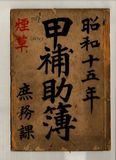 昭和十五年
甲補助簿
煙草
庶務課